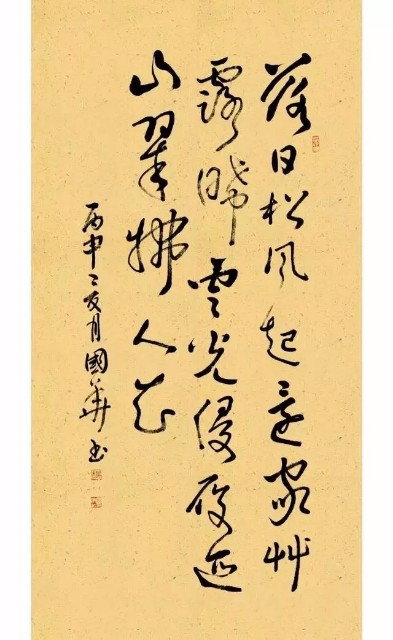 落日松風起還家艸
露晞雲光侵履迹
山翠拂人衣
丙申之夏月國華書